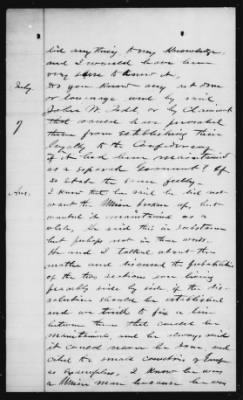 did anything to my knowledge
and I would have been
very sure to know it.
Do you know any act done
or language used by said
John W. Fall, or by Claimant
that would have prevented
them from establishing their
loyalty to the Confederacy
if it had been maintained
as a separate Government? If
so state the same fully.
Ans.
I know that he said he did not
want the Union broken up, but
wanted it maintained as a
whole, he said this in substance
but perhaps not in these words.
He and I talked about this
matter and discussed the probabilities
of the two sections ever living
peaceably side by side if the dis-
solution should be established
and we tried to fix a line
between them that could be
maintained and he always said
it could never be done, and
cited the small countries of Europe
as examples, I know he was
a Union man because he was